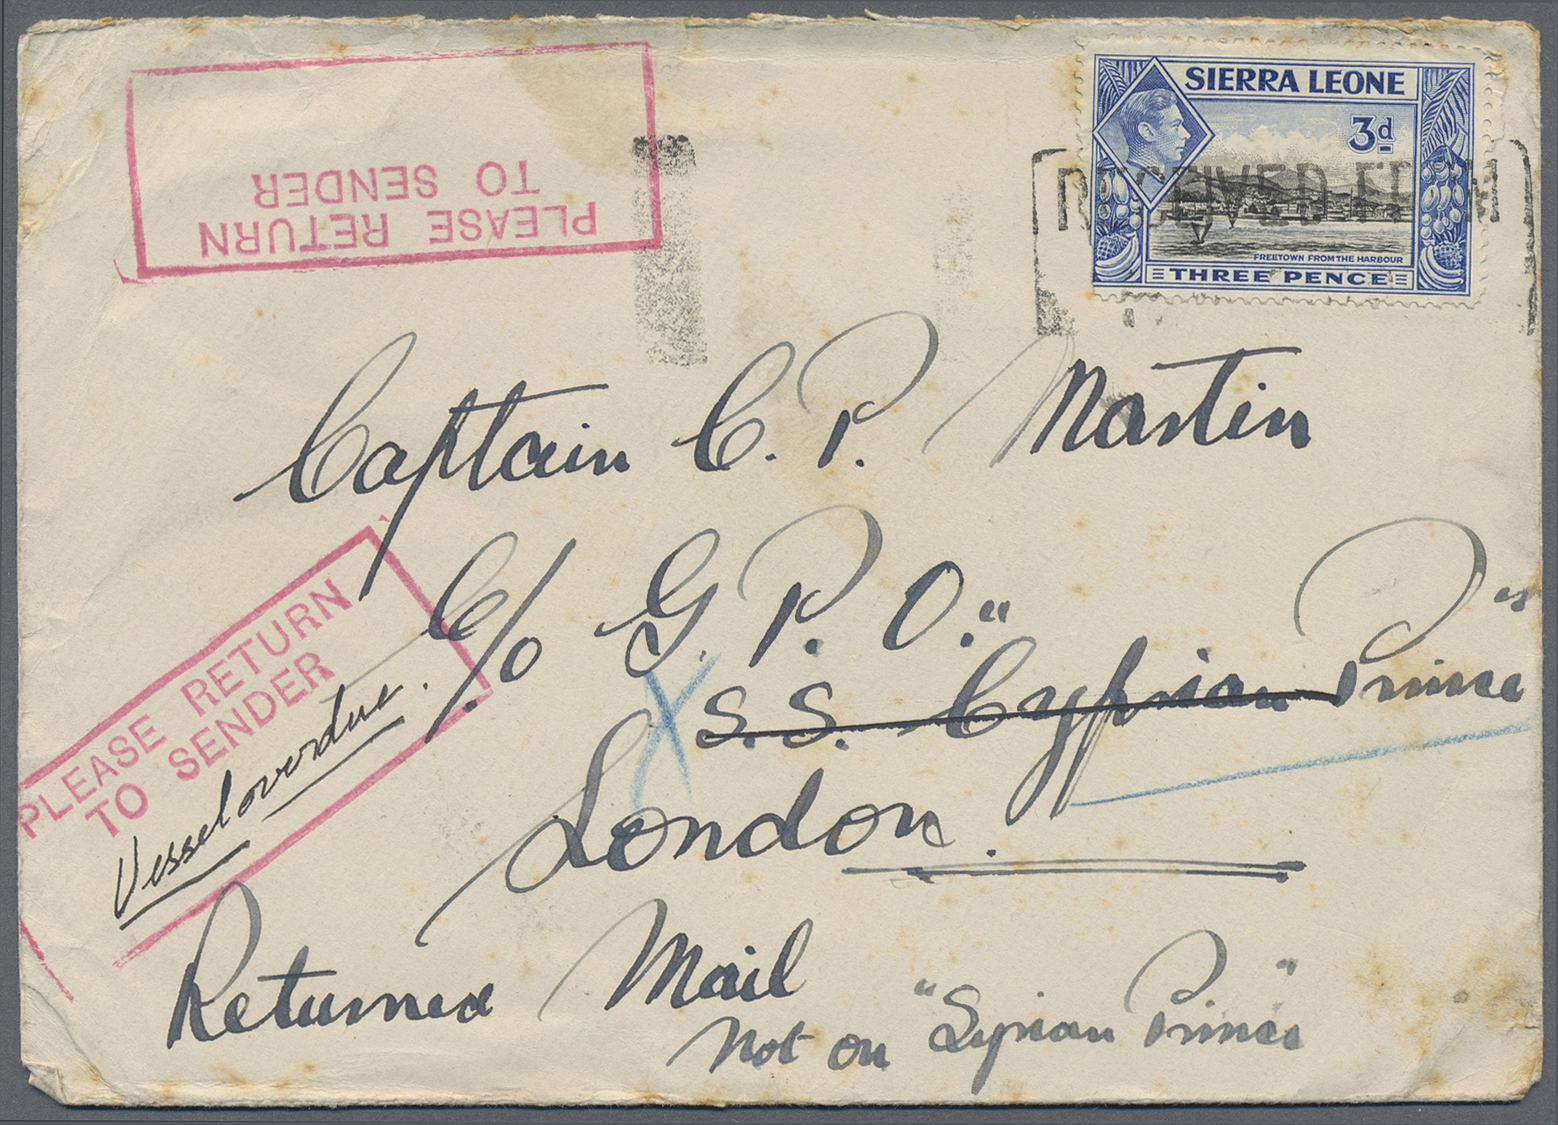 PLEASE RETURN
TO SENDER
SIERRA LEONE
3d
RECEIVED FROM
FREETOWN FROM THE HARBOUR
THREE PENCE
Captain C. P. Martin
C/o G. P. O.
"S.S. Cyprian Prince"
London.
PLEASE RETURN
TO SENDER
Vessel overdue.
Returned Mail
Not on "Syrian Prince"